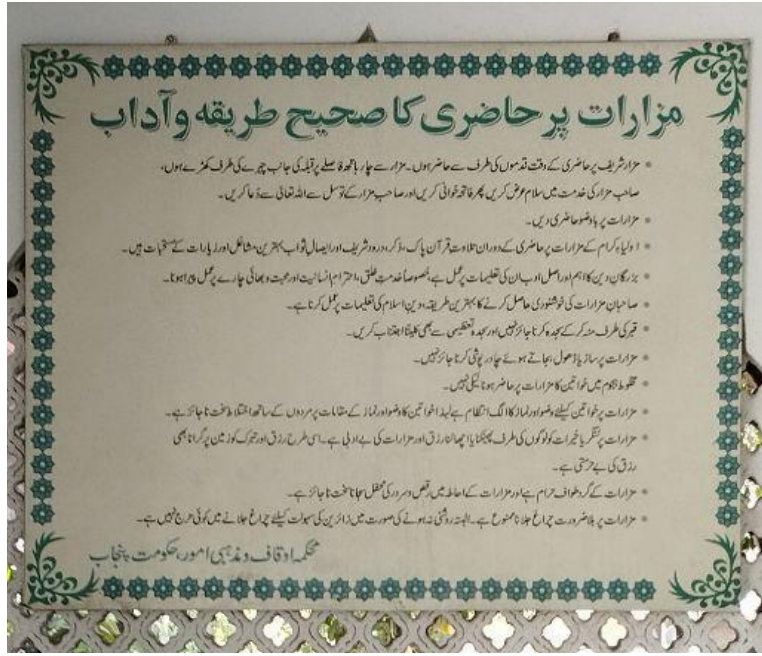 مزارات پر حاضری کا صحیح طریقہ و آداب
مزار شریف پر حاضری کے وقت قدموں کی طرف سے حاضر ہوں۔ مزار سے چار ہاتھ فاصلے پر قبلہ کی جانب چہرے کی طرف کھڑے ہوں،
صاحب مزار کی خدمت میں سلام عرض کریں پھر فاتحہ خوانی کریں اور صاحب مزار کے توسل سے اللہ تعالیٰ سے دُعا کریں۔
مزارات پر باوضو حاضری دیں۔
اولیاء کرام کے مزارات پر حاضری کے دوران تلاوت قرآن پاک، ذکر، درود شریف اور ایصال ثواب بہترین مشاغل اور زیارات کے مستحبات ہیں۔
بزرگان دین کا اہم اور اصل ادب ان کی تعلیمات پر عمل ہے، خصوصاً خدمت خلق، احترام انسانیت اور محبت و بھائی چارے پر عمل پیرا ہونا۔
صاحبان مزارات کی خوشنودی حاصل کرنے کا بہترین طریقہ، دین اسلام کی تعلیمات پر عمل کرنا ہے۔
قبر کی طرف منہ کر کے سجدہ کرنا جائز نہیں اور سجدہ تعظیمی سے بھی کلیتاً اجتناب کریں۔
مزارات پر ساز یا ڈھول بجاتے ہوئے چادر پوشی کرنا جائز نہیں۔
مخلوط ہجوم میں خواتین کا مزارات پر حاضر ہونا نیکی نہیں۔
مزارات پر خواتین کیلئے وضو اور نماز کا الگ انتظام ہے لہذا خواتین کا وضو اور نماز کے مقامات پر مردوں کے ساتھ اختلاط سخت ناجائز ہے۔
مزارات پر لنگر یا خیرات کو لوگوں کی طرف پھینکنا یا اچھالنا رزق اور مزارات کی بے ادبی ہے۔ اسی طرح رزق اور تبرک کو زمین پر گرانا بھی
رزق کی بے حرمتی ہے۔
مزارات کے گرد طواف حرام ہے اور مزارات کے احاطہ میں رقص و سرور کی محفل سجانا سخت ناجائز ہے۔
مزارات پر بلا ضرورت چراغ جلانا ممنوع ہے۔ البتہ روشنی نہ ہونے کی صورت میں زائرین کی سہولت کیلئے چراغ جلانے میں کوئی حرج نہیں ہے۔
محکمہ اوقاف و مذہبی امور، حکومت پنجاب